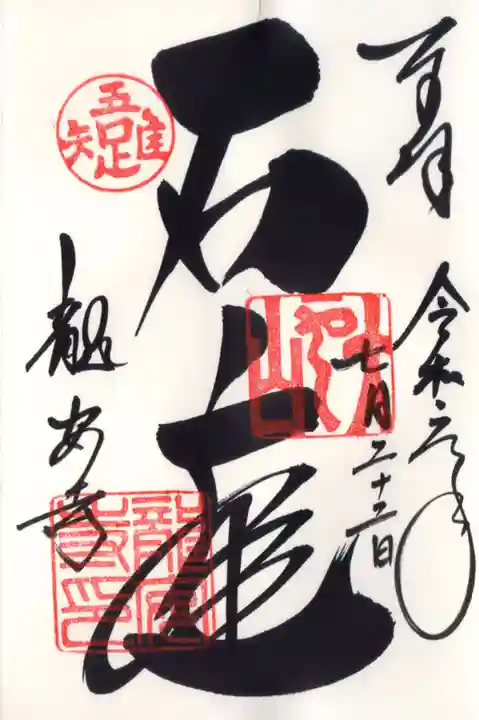 奉拝
令和元年
七月二十三日
石庭
龍安寺
吾唯足知
龍安寺印